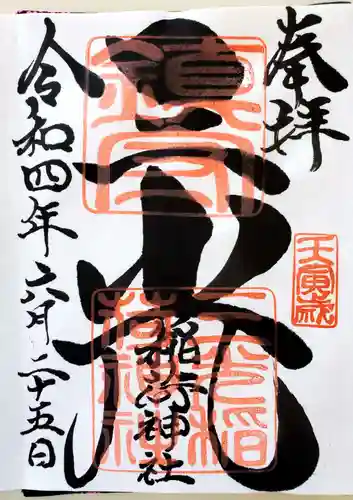 奉拝
壬寅歳
三光
稲荷神社
三光稲
荷神社
令和四年六月二十五日